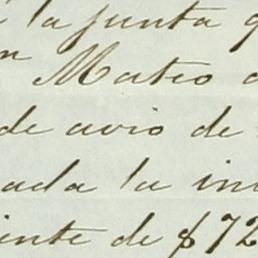 la junta
n Mateo
de avio de
ada la in
iente de $72